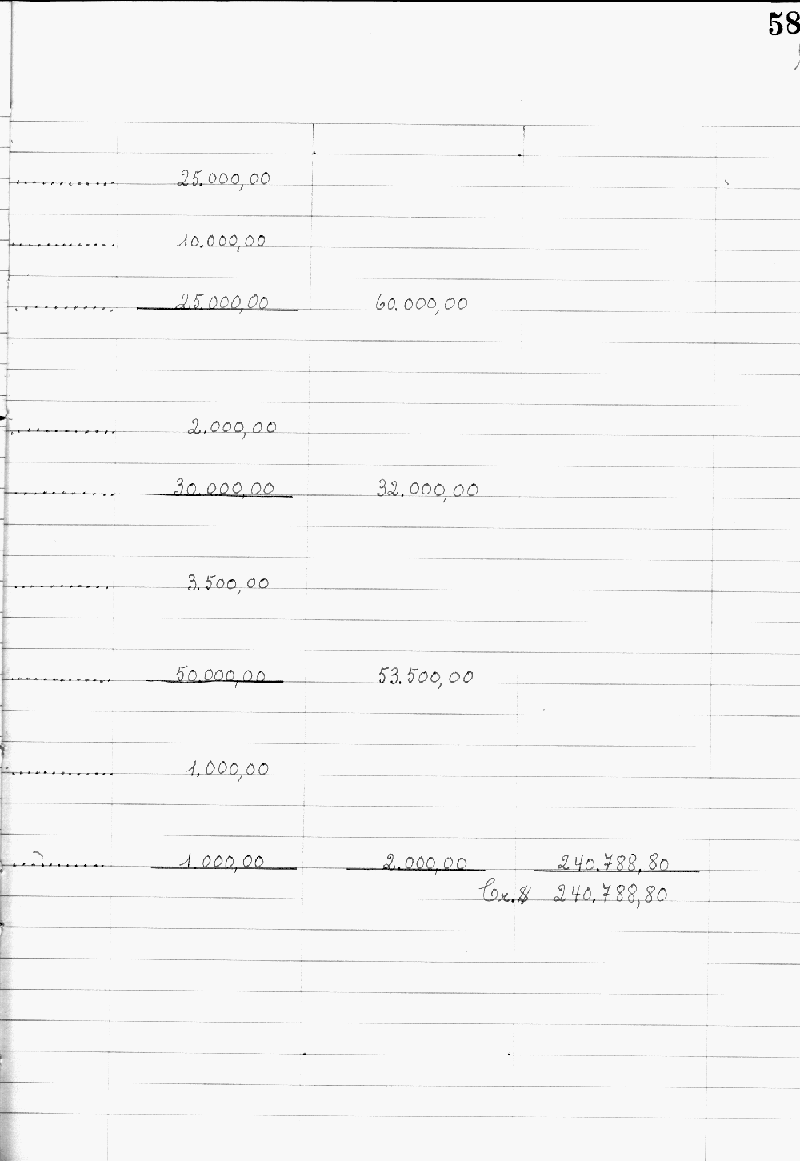 58
25.000,00
10.000,00
25.000,00 60.000,00
2.000,00
30.000,00 32.000,00
3.500,00
50.000,00 53.500,00
1.000,00
1.000,00 2.000,00 240.788,80
Cr.$ 240.788,80